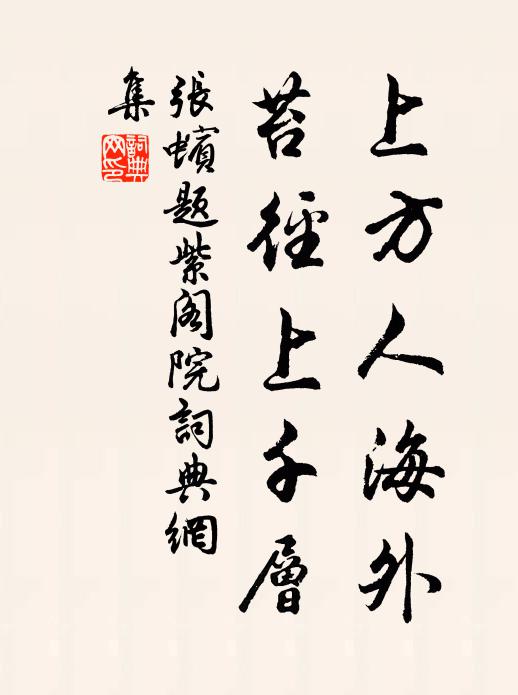 上方人海外
苔徑上千層
張蠙題紫阁院詞典網
集
詞典網印